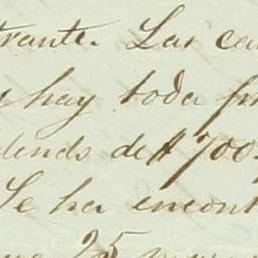 trante. Las ca
hay toda f
dends de $700.
Se ha encont
25